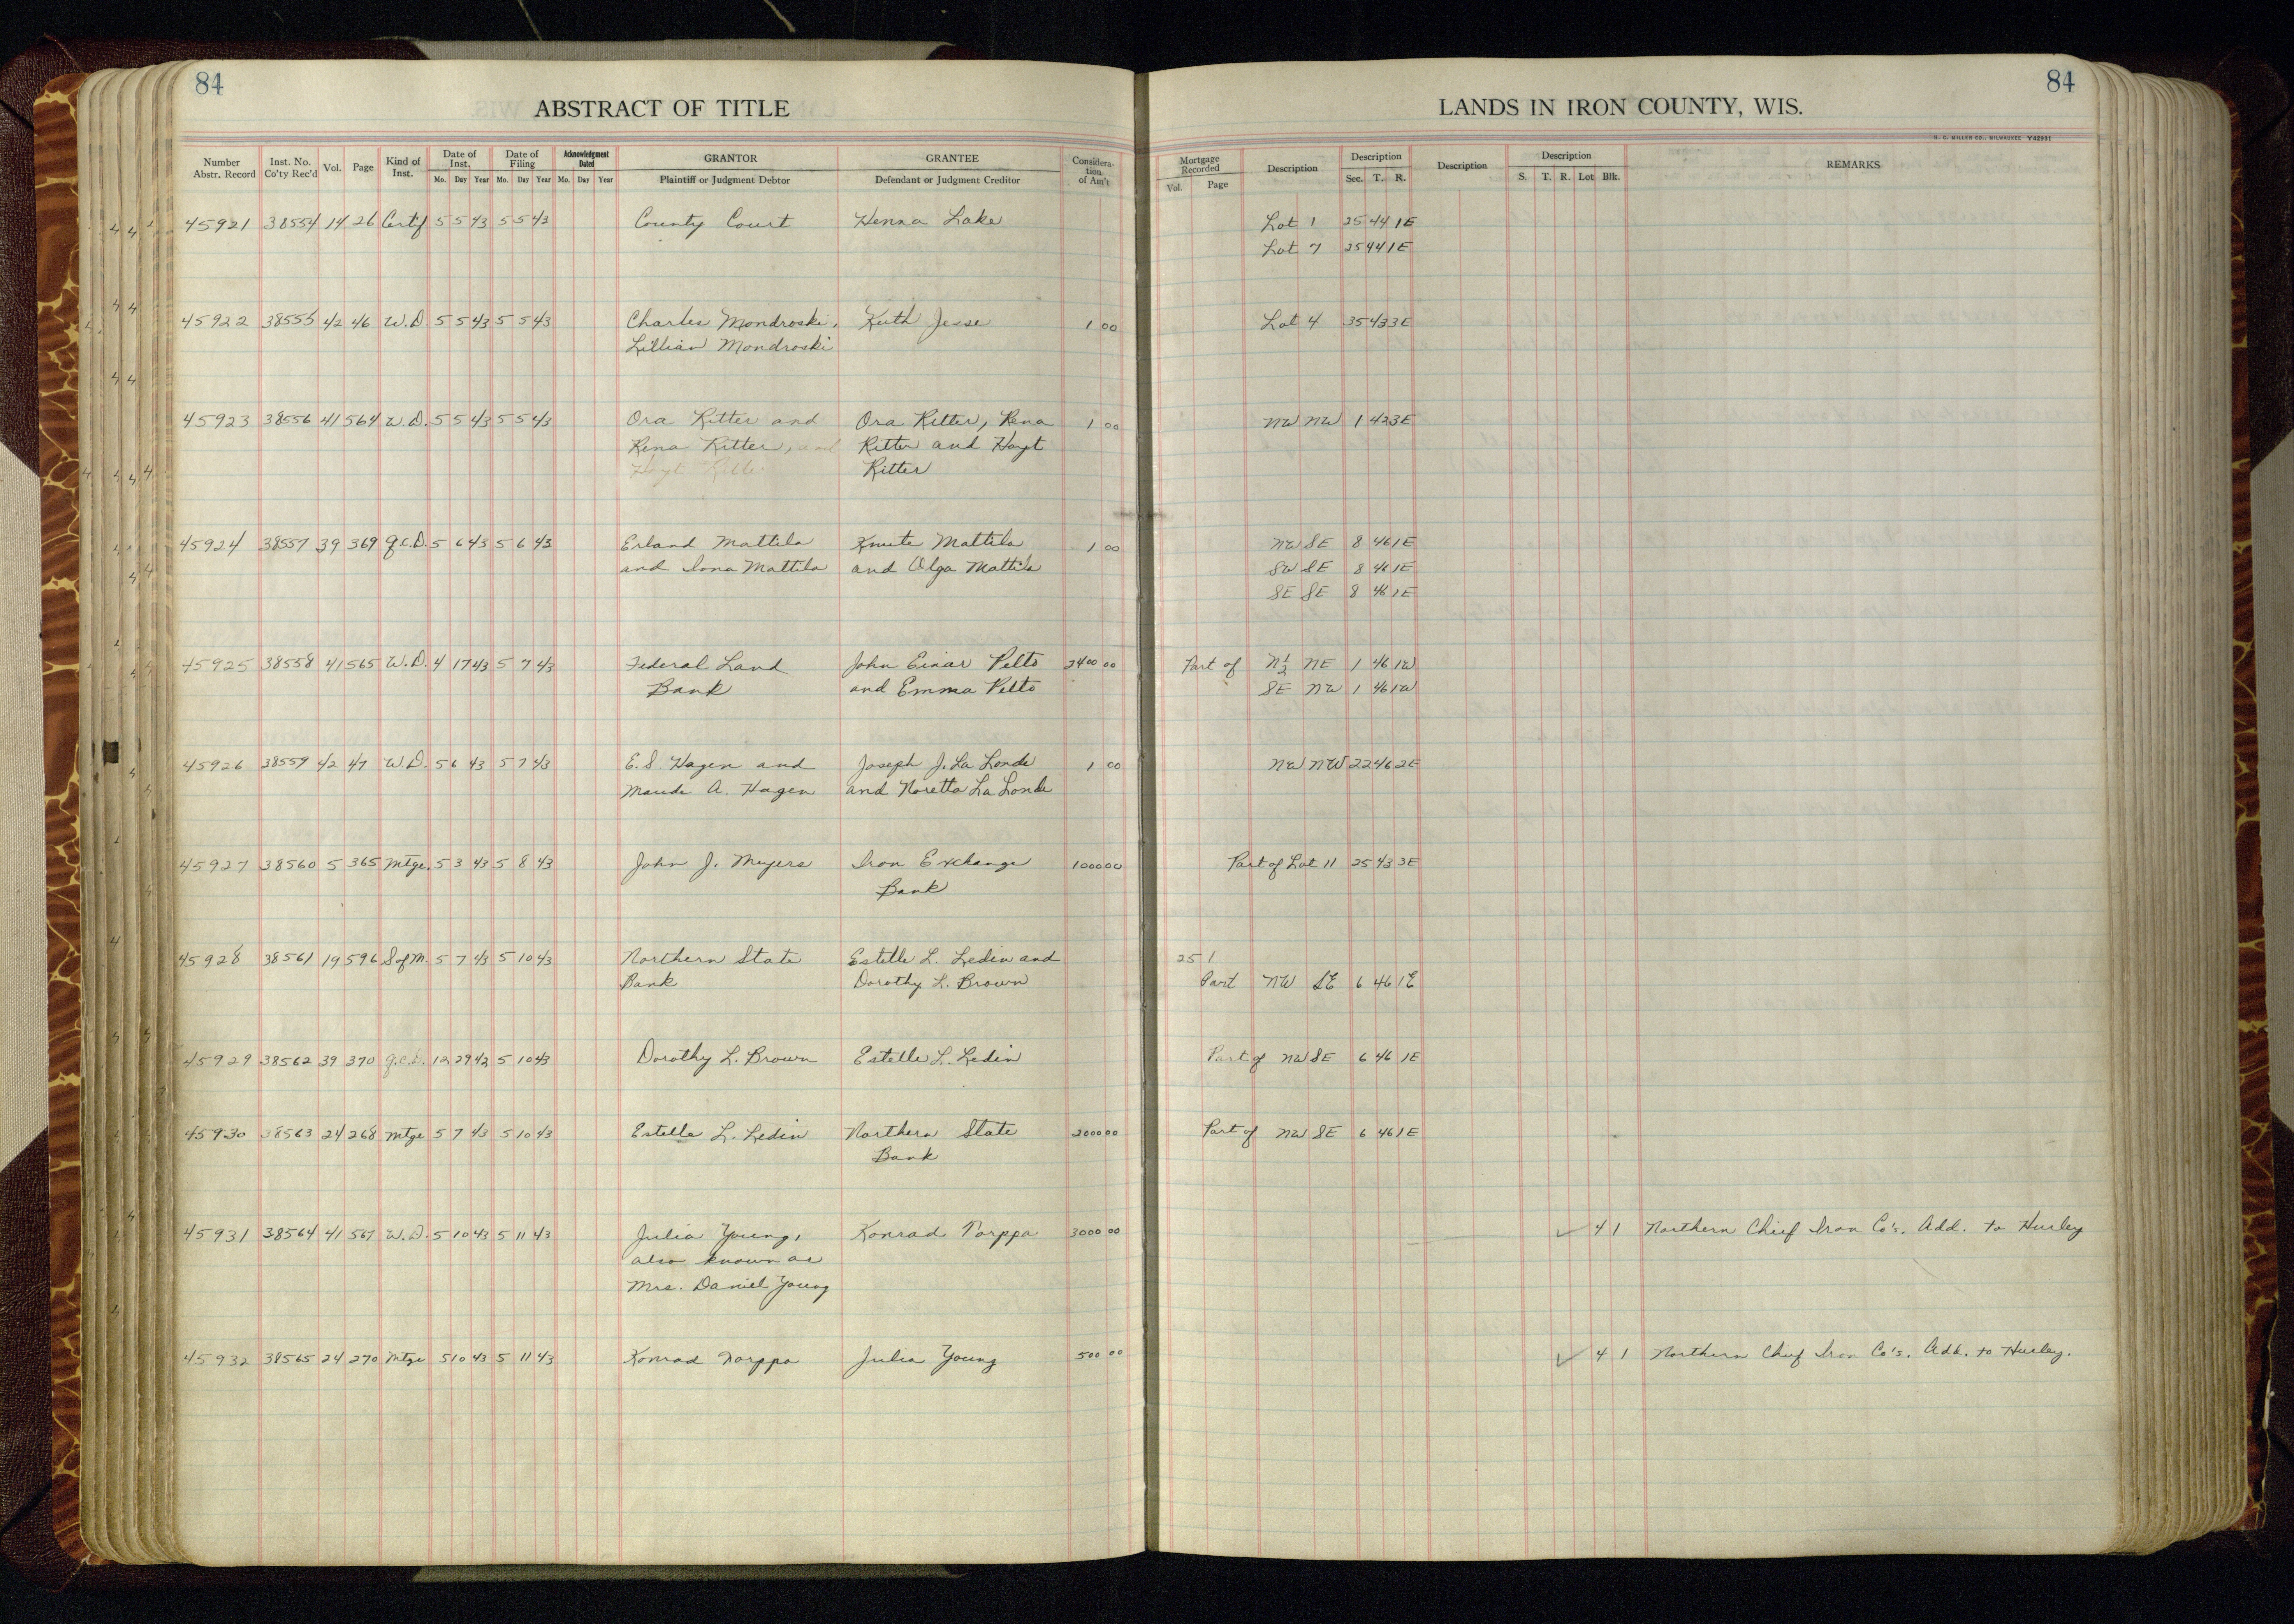 84
ABSTRACT OF TITLE
Number Abstr. Record Inst. No. Co'ty Rec'd Vol. Page Kind of Inst. Date of Inst. Mo. Day Year Date of Filing Mo. Day Year Acknowledgment Dated Mo. Day Year GRANTOR Plaintiff or Judgment Debtor GRANTEE Defendant or Judgment Creditor Consideration of Am't
84
LANDS IN IRON COUNTY, WIS.
H. C. MILLER CO., MILWAUKEE Y42991
Mortgage Recorded Vol. Page Description Description Sec. T. R. Description Description S. T. R. Lot Blk. REMARKS
45921 38554 14 26 Certif 5 5 43 5 5 43 County Court Henna Lake Lot 1 25 44 1E
Lot 7 25 44 1E
45922 38555 42 46 W.D. 5 5 43 5 5 43 Charles Mondroski, Keith Jesse 1 00 Lot 4 35 43 3E
Lillian Mondroski
45923 38556 41 564 W.D. 5 5 43 5 5 43 Ora Ritter and Ora Ritter, Rena 1 00 NW NW 1 42 3E
Rena Ritter, and Ritter and Hoyt
Hoyt Ritter Ritter
45924 38557 39 369 Q.C.D. 5 6 43 5 6 43 Erland Mattila Knute Mattila 1 00 NW SE 8 46 1E
and Mattila and Olga Mattila SW SE 8 46 1E
SE SE 8 46 1E
45925 38558 41 565 W.D. 4 17 43 5 7 43 Federal Land John Einar Pelto 2400 00 Part of N½ NE 1 46 1W
Bank and Emma Pelto SE NW 1 46 1W
45926 38559 42 47 W.D. 5 6 43 5 7 43 E. S. Hagen and Joseph J. La Londe 1 00 NW NW 22 46 2E
Maude A. Hagen and Noretta La Londe
45927 38560 5 365 Mtge. 5 3 43 5 8 43 John J. Meyers Iron Exchange 1000 00 Part of Lot 11 25 43 3E
Bank
45928 38561 19 596 S of M. 5 7 43 5 10 43 Northern State Estelle L. Ledin and 25 1
Bank Dorothy L. Brown Part NW SE 6 46 1E
45929 38562 39 370 Q.C.D. 12 29 42 5 10 43 Dorothy L. Brown Estelle L. Ledin Part of NW SE 6 46 1E
45930 38563 24 268 Mtge 5 7 43 5 10 43 Estelle L. Ledin Northern State 2000 00 Part of NW SE 6 46 1E
Bank
45931 38564 41 567 W.D. 5 10 43 5 11 43 Julia Young, Konrad Norppa 3000 00 ✓ 4 1 Northern Chief Iron Co's. Add. to Hurley
also known as
Mrs. Daniel Young
45932 38565 24 270 Mtge 5 10 43 5 11 43 Konrad Norppa Julia Young 500 00 ✓ 4 1 Northern Chief Iron Co's. Add. to Hurley.